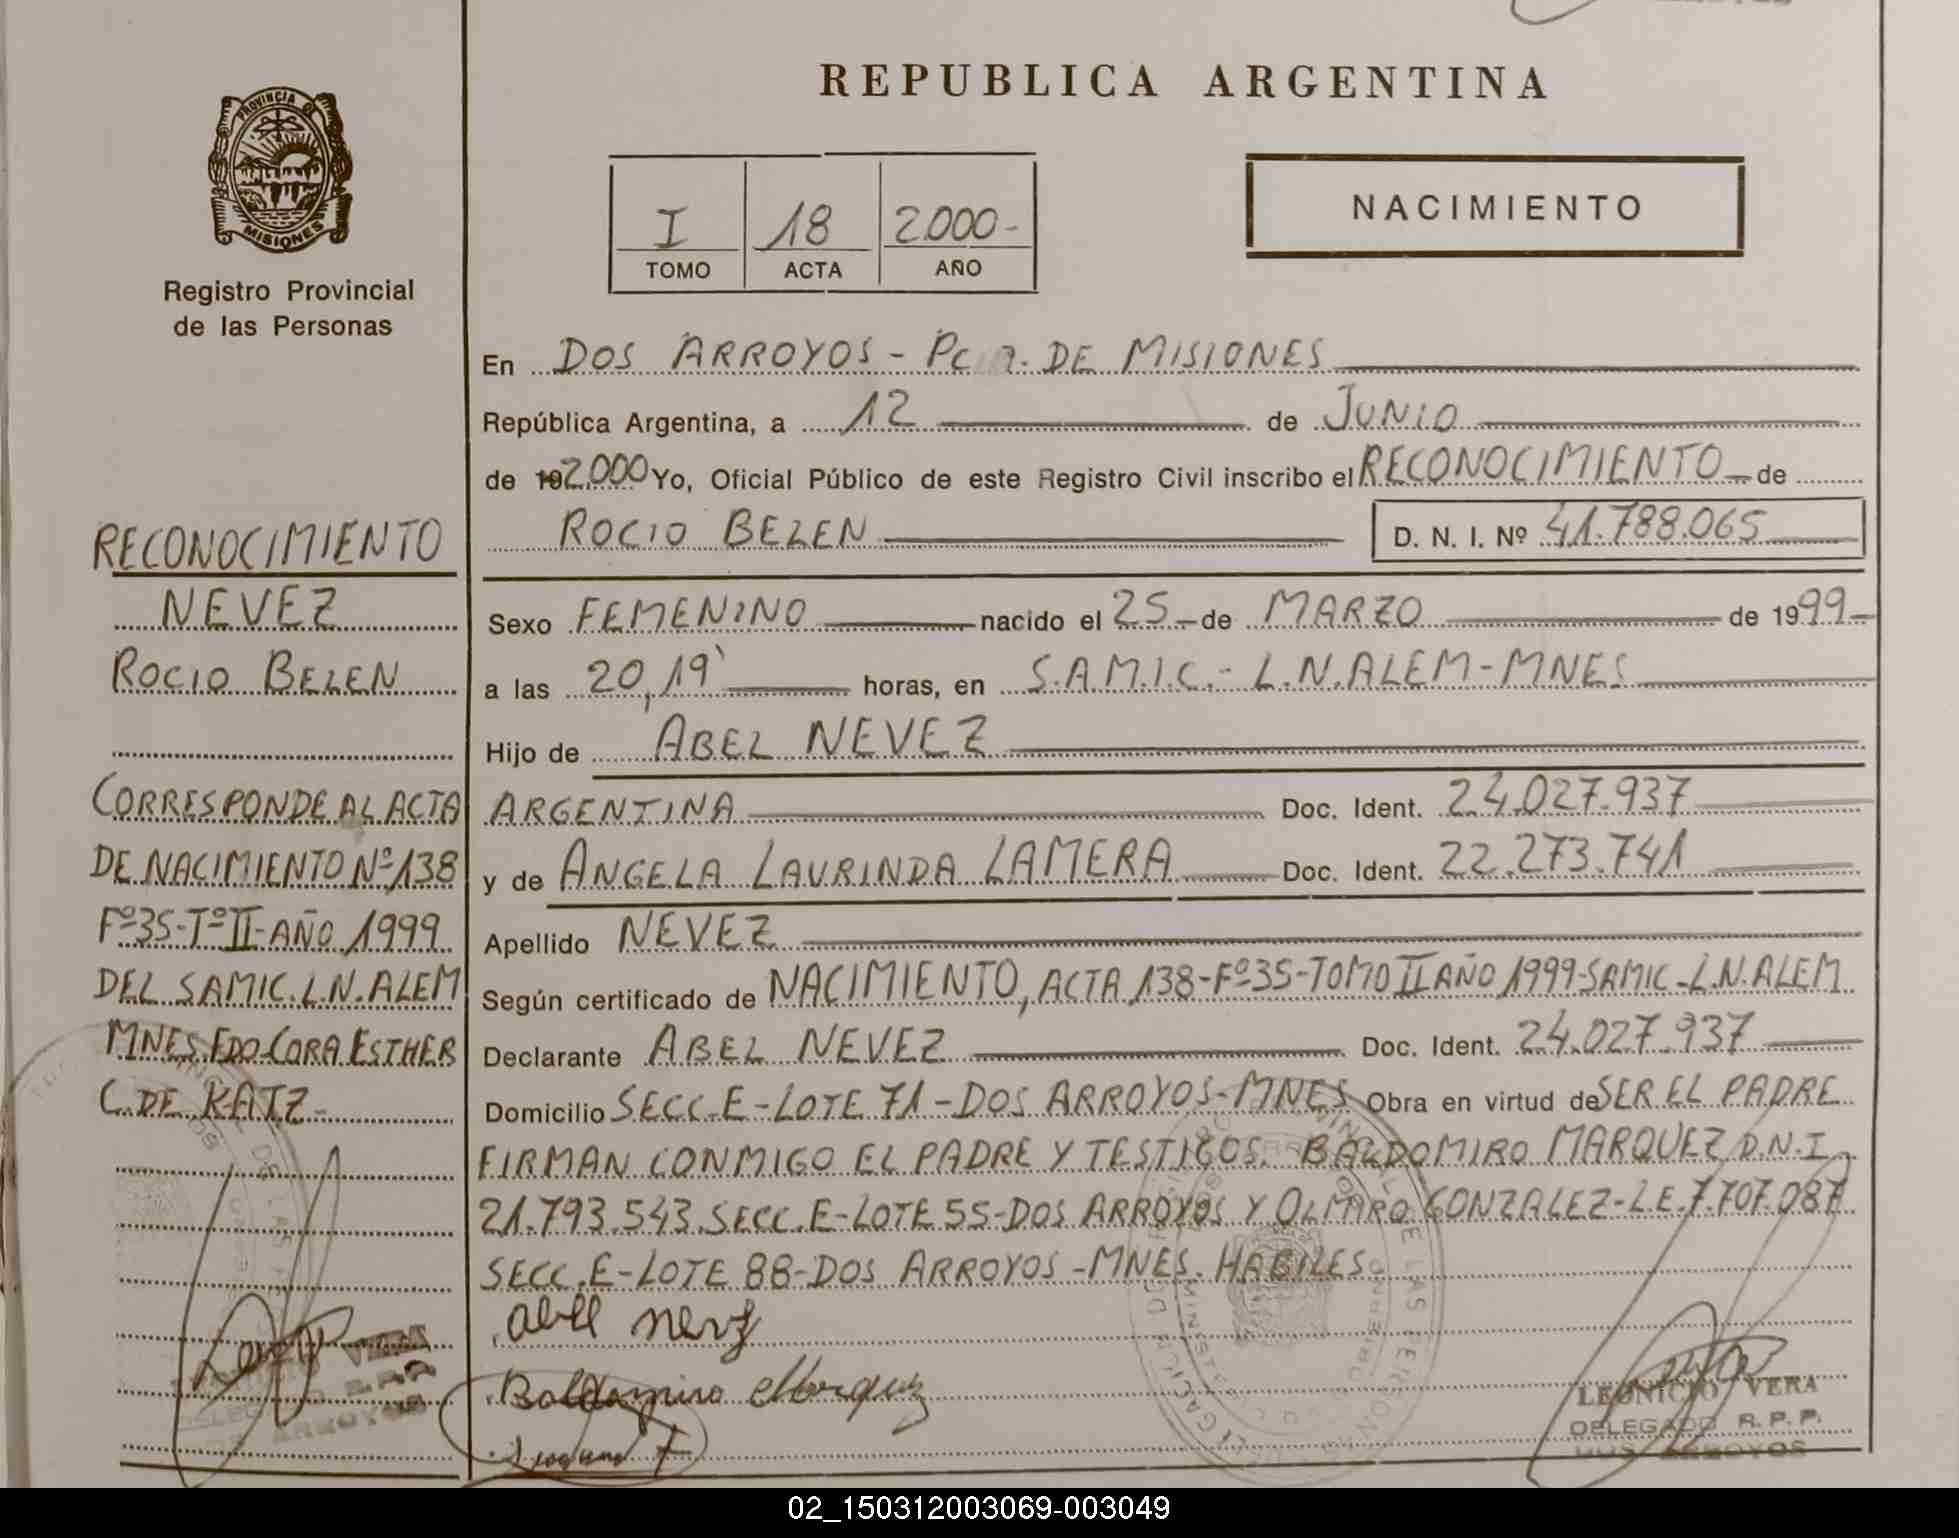 REPUBLICA ARGENTINA
PROVINCIA DE
MISIONES
Registro Provincial
de las Personas
I 18 2.000-
TOMO ACTA AÑO
NACIMIENTO
En DOS ARROYOS - DE MISIONES
República Argentina, a 12 de JUNIO
de 192.000 Yo, Oficial Público de este Registro Civil inscribo el RECONOCIMIENTO de
ROCIO BELEN D. N. I. Nº 41.788.065
Sexo FEMENINO nacido el 25 de MARZO de 1999-
a las 20,19' horas, en S.A.M.I.C.- L.N.ALEM-MNES
Hijo de ABEL NEVEZ
ARGENTINA Doc. Ident. 24.027.937
y de ANGELA LAURINDA LAMERA Doc. Ident. 22.273.741
Apellido NEVEZ
Según certificado de NACIMIENTO, ACTA 138-Fº35-TOMO II AÑO 1999-SAMIC-L.N.ALEM
Declarante ABEL NEVEZ Doc. Ident. 24.027.937
Domicilio SECC.E-LOTE 71-DOS ARROYOS-MNES Obra en virtud de SER EL PADRE
FIRMAN CONMIGO EL PADRE Y TESTIGOS. BALDOMIRO MARQUEZ D.N.I.
21.793.543.SECC.E-LOTE 55-DOS ARROYOS Y OLMIRO GONZALEZ-L.E.7.707.087
SECC.E-LOTE 88-DOS ARROYOS-MNES. HABILES.
Baldomiro Marquez
LEONICIO VERA
DELEGADO R.P.P.
DOS ARROYOS
RECONOCIMIENTO
NEVEZ
ROCIO BELEN
CORRESPONDE AL ACTA
DE NACIMIENTO Nº138
Fº35-TºII-AÑO 1999
DEL SAMIC.L.N.ALEM
MNES.FDO-CORA ESTHER
C.DE KATZ-
02_150312003069-003049